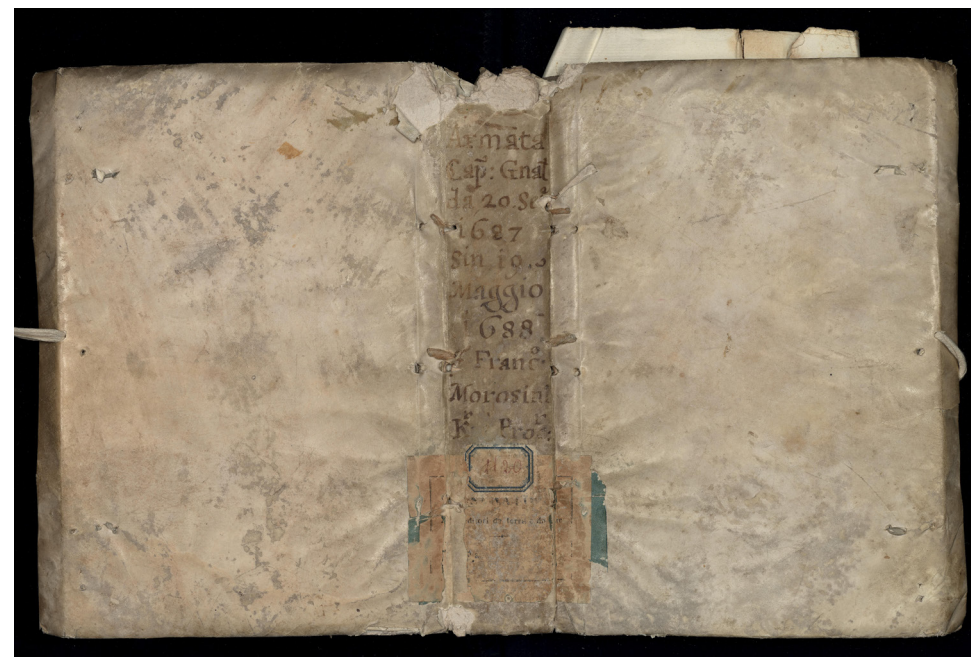 Armata
Cap: Gnāl
da 20. Se
1687
Sin 19.
Maggio
1688
Franc.º
Morosini
K.r Pro.r
1120